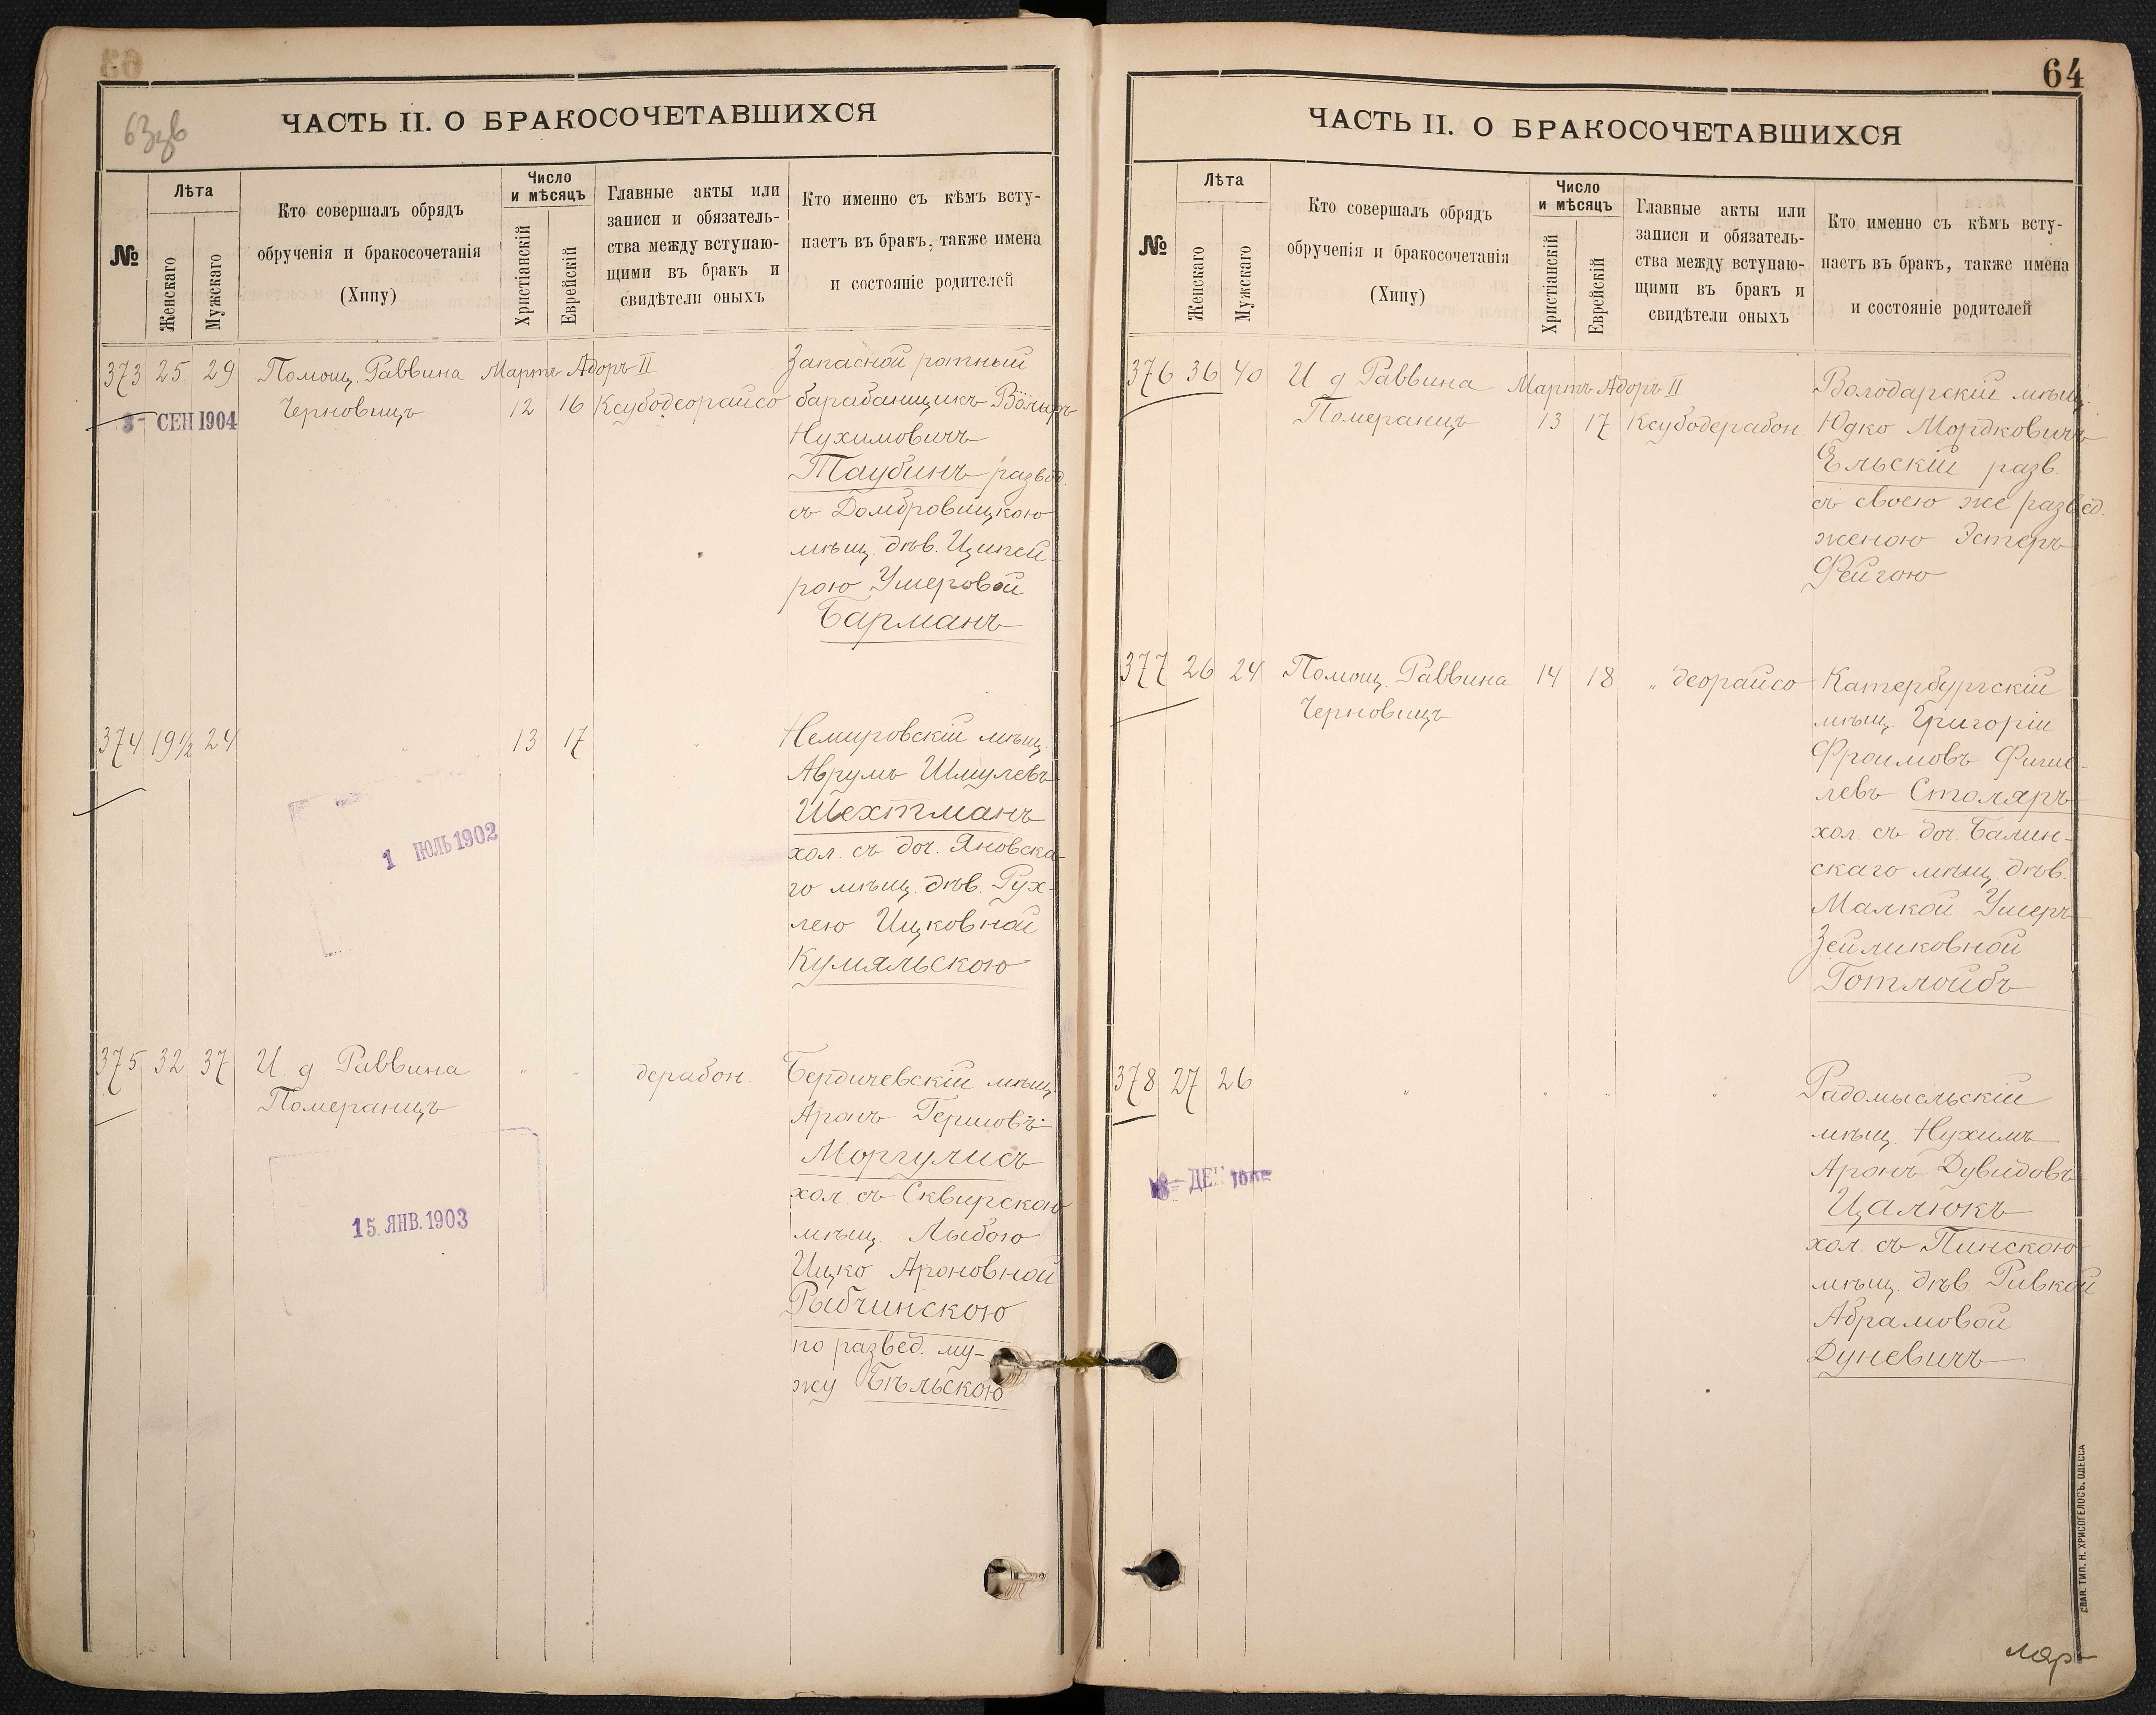 63 зв
ЧАСТЬ II. О БРАКОСОЧЕТАВШИХСЯ
№
Лѣта
Женскаго
Мужскаго
Кто совершалъ обрядъ
обрученія и бракосочетанія
(Хипу)
Число
и мѣсяцъ
Христіанскій
Еврейскій
Главные акты или
записи и обязатель-
ства между вступаю-
щими въ бракъ и
свидѣтели оныхъ
Кто именно съ кѣмъ всту-
паетъ въ бракъ, также имена
и состояніе родителей
373 25 29 Помощ. Раввина Мартъ Адоръ II Запасной ротный
3- СЕН 1904 Черновицъ 12 16 Ксубодеорайсо барабанщикъ
Нухимовичъ
Таубинъ развод.
съ Домбровицкою
мѣщ. дѣв. Ципей-
рою Умеровой
Барманъ
374 19½ 24 " 13 17 " Немировскій мѣщ.
Аврумъ Шмулевъ
Шехтманъ
хол. съ доч. Яновска-
го мѣщ. дѣв. Рух-
лею Ицковной
Кумяльскою
1 ІЮЛЬ 1902
375 32 37 И д Раввина " " дерабон. Бердичевскій мѣщ.
Померанцъ Аронъ Гершовъ
Моргулисъ
хол съ Сквирскою
мѣщ. Лыбою
Ицко Ароновной
Рыбчинскою
по развед. му-
жу Бѣльскою
15. ЯНВ. 1903
64
ЧАСТЬ II. О БРАКОСОЧЕТАВШИХСЯ
№
Лѣта
Женскаго
Мужскаго
Кто совершалъ обрядъ
обрученія и бракосочетанія
(Хипу)
Число
и мѣсяцъ
Христіанскій
Еврейскій
Главные акты или
записи и обязатель-
ства между вступаю-
щими въ бракъ и
свидѣтели оныхъ
Кто именно съ кѣмъ всту-
паетъ въ бракъ, также имена
и состояніе родителей
376 36 40 И д Раввина Мартъ Адоръ II Володарскій мѣщ.
Померанцъ 13 17 Ксубодерабон Юдко Мордковичъ
Ельскій разв.
съ своею же развед.
женою Эстеръ
Фейгою
377 26 24 Помощ. Раввина 14 18 " деорайсо Катербургскій
Черновицъ мѣщ. Григорій
Фроимовъ Фише-
левъ Столяръ
хол. съ доч. Балин-
скаго мѣщ. дѣв.
Малкой Умеръ
Зейликовной
Готлойбъ
378 27 26 " " " " Радомысльскій
мѣщ. Нухимъ
Аронъ Дувидовъ
Цалюкъ
хол. съ Пинскою
мѣщ. дѣв. Ривкой
Абрамовой
Дуневичъ
ДЕК
СЛАВ. ТИП. Н. ХРИСОГЕЛОСЪ. ОДЕССА